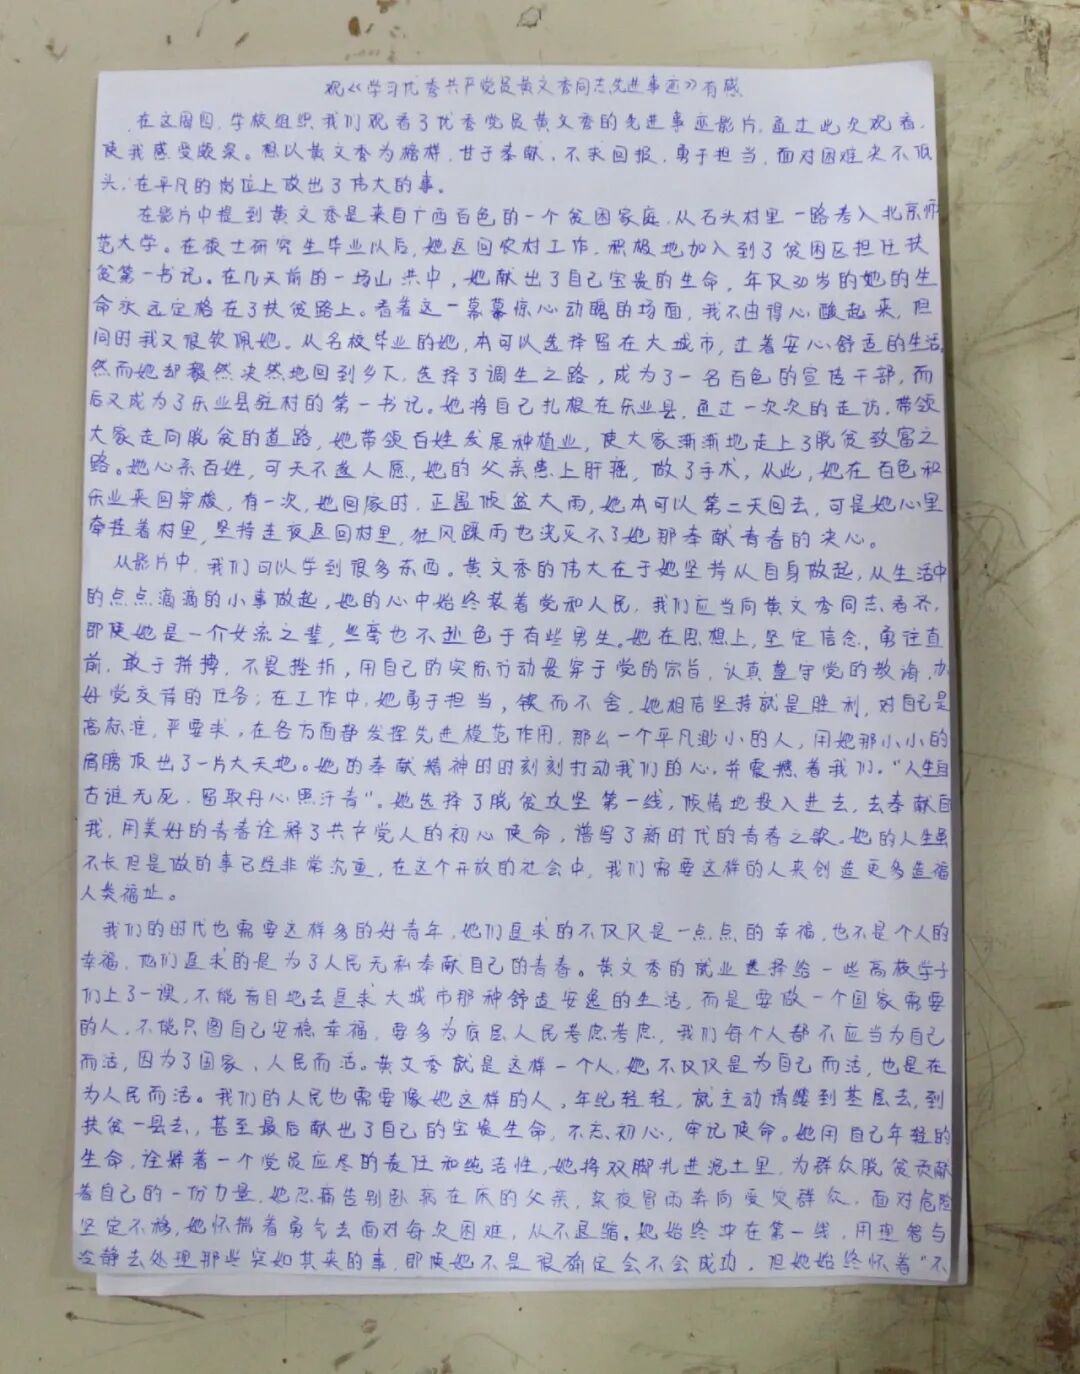 观《学习优秀共产党员黄文秀同志先进事迹》有感
在这周四,学校组织我们观看了优秀党员黄文秀的先进事迹影片,通过此次观看,
使我感受颇深。想以黄文秀为榜样,甘于奉献,不求回报,勇于担当,面对困难决不低
头,在平凡的岗位上做出了伟大的事。
在影片中提到黄文秀是来自广西百色的一个贫困家庭,从石头村里一路考入北京师
范大学。在硕士研究生毕业以后,她返回农村工作,积极地加入到了贫困区担任扶
贫第一书记。在几天前的一场山洪中,她献出了自己宝贵的生命,年仅30岁的她的生
命永远定格在了扶贫路上。看着这一幕幕惊心动魄的场面,我不由得心酸起来,但
同时我又很钦佩她。从名校毕业的她,本可以选择留在大城市,过着安心舒适的生活,
然而她却毅然决然地回到乡下,选择了调生之路,成为了一名百色的宣传干部,而
后又成为了乐业县驻村的第一书记。她将自己扎根在乐业县,通过一次次的走访,带领
大家走向脱贫的道路,她带领百姓发展种植业,使大家渐渐地走上了脱贫致富之
路。她心系百姓,可天不遂人愿,她的父亲患上肝癌,做了手术,从此,她在百色和
乐业来回穿梭,有一次,她回家时,正置倾盆大雨,她本可以第二天回去,可是她心里
牵挂着村里,坚持连夜返回村里,狂风躁雨也浇灭不了她那奉献青春的决心。
从影片中,我们可以学到很多东西。黄文秀的伟大在于她坚持从自身做起,从生活中
的点点滴滴的小事做起,她的心中始终装着党和人民,我们应当向黄文秀同志看齐,
即使她是一介女流之辈,丝毫也不逊色于有些男生。她在思想上,坚定信念,勇往直
前,敢于拼搏,不畏挫折,用自己的实际行动贯穿于党的宗旨,认真遵守党的教诲,办
好党交背的任务;在工作中,她勇于担当,锲而不舍,她相信坚持就是胜利,对自己是
高标准,严要求,在各方面都发挥先进模范作用,那么一个平凡渺小的人,用她那小小的
肩膀顶出了一片大天地。她的奉献精神时时刻刻打动我们的心,并震撼着我们,"人生自
古谁无死,留取丹心照汗青"。她选择了脱贫攻坚第一线,倾情地投入进去,去奉献自
我,用美好的青春诠释了共产党人的初心使命,谱写了新时代的青春之歌。她的人生虽
不长但是做的事已经非常沉重,在这个开放的社会中,我们需要这样的人来创造更多造福
人类福址。
我们的时代也需要这样多的好青年,她们追求的不仅仅是一点点的幸福,也不是个人的
幸福,他们追求的是为了人民无私奉献自己的青春。黄文秀的就业选择给一些高校学子
们上了一课,不能盲目地去追求大城市那种舒适安逸的生活,而是要做一个国家需要
的人,不能只图自己安稳幸福,要多为底层人民考虑考虑,我们每个人都不应当为自己
而活,因为了国家、人民而活。黄文秀就是这样一个人,她不仅仅是为自己而活,也是在
为人民而活。我们的人民也需要像她这样的人,年纪轻轻,就主动请缨到基层去,到
扶贫一县去,甚至最后献出了自己的宝贵生命,不忘初心,牢记使命。她用自己年轻的
生命,诠释着一个党员应尽的责任和纯洁性,她将双脚扎进泥土里,为群众脱贫贡献
着自己的一份力量,她忍痛告别卧病在床的父亲,亲夜冒雨奔向受灾群众,面对危险
坚定不移,她怀揣着勇气去面对每次困难,从不退缩。她始终冲在第一线,用理智与
冷静去处理那些突如其来的事,即使她不是很确定会不会成功,但她始终怀着"不